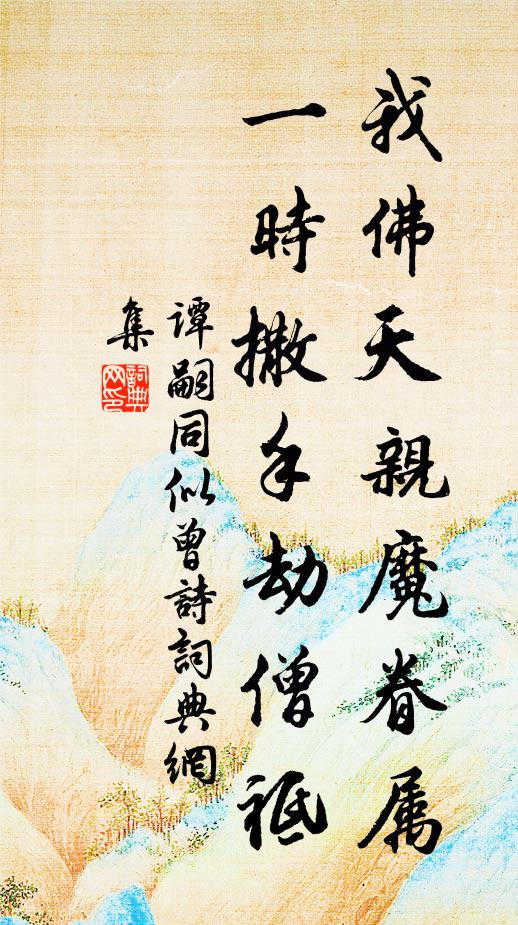 我佛天親魔眷属
一時撒手劫僧祗
谭嗣同似曾詩詞典網
集
詞典
网印